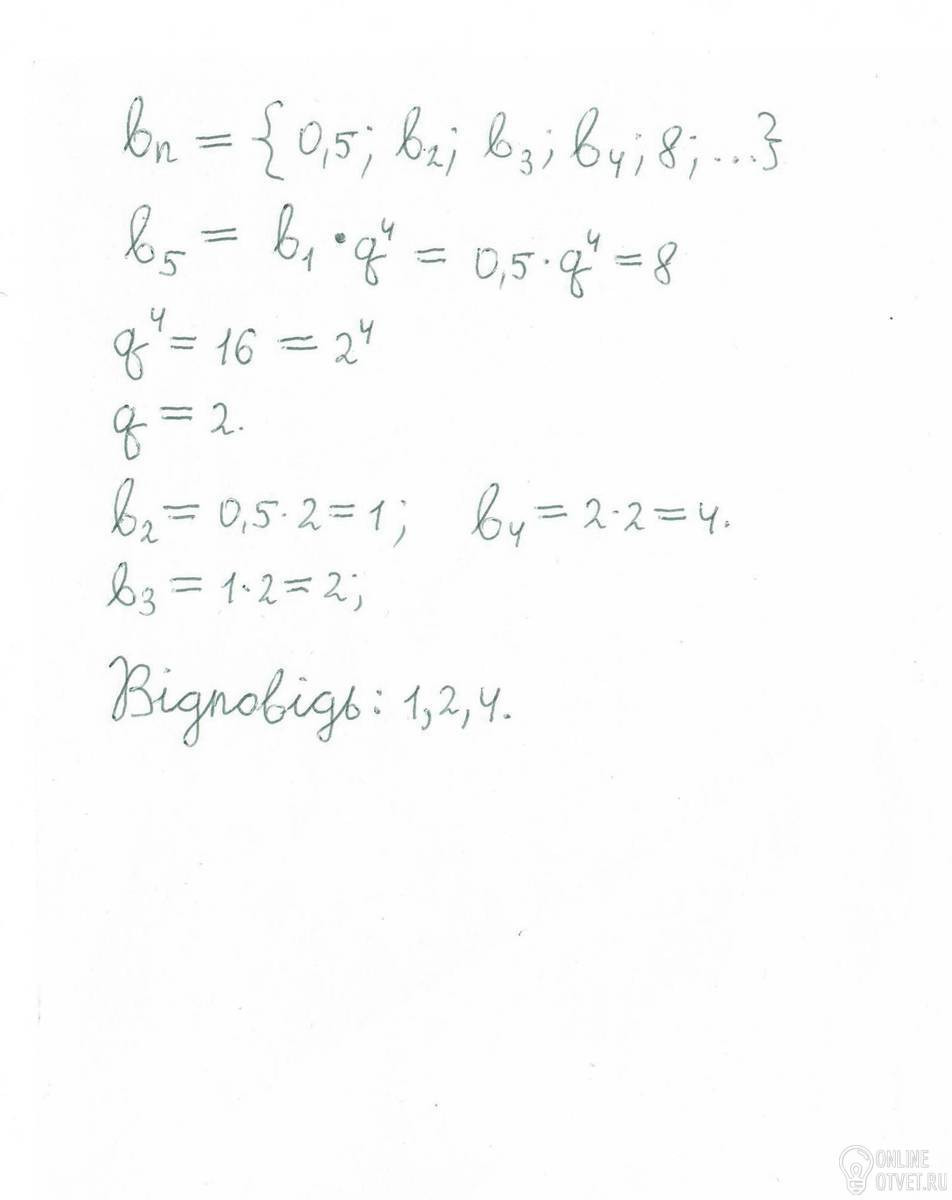 bₙ = {0,5; b₂; b₃; b₄; 8; ...}
b₅ = b₁ · q⁴ = 0,5 · q⁴ = 8
q⁴ = 16 = 2⁴
q = 2.
b₂ = 0,5 · 2 = 1; b₄ = 2 · 2 = 4.
b₃ = 1 · 2 = 2;
Відповідь: 1, 2, 4.
ONLINE
OTVET.RU